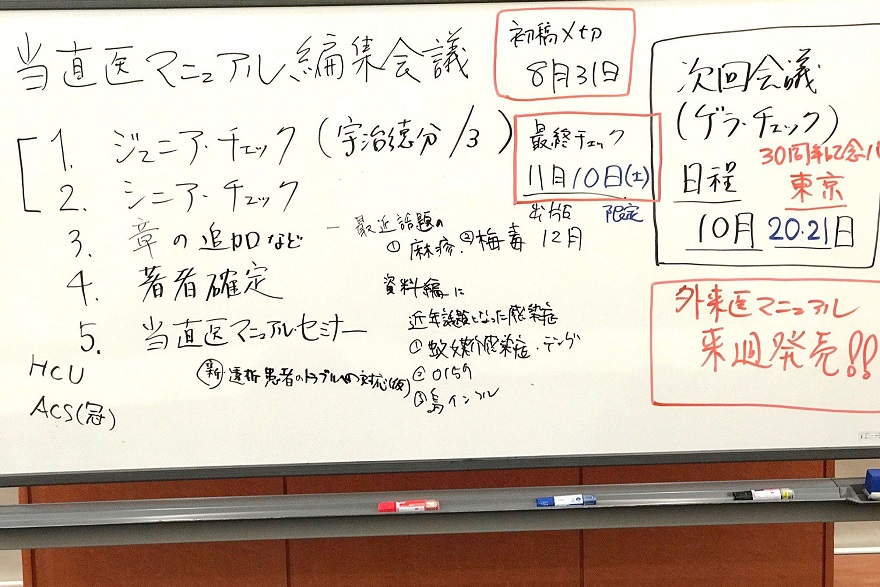 当直医マニュアル編集会議
初稿〆切
8月31日
1. ジュニア・チェック (宇治徳分/3)
2. シニア・チェック
3. 章の追加など ー 最近話題の
① 麻疹・②梅毒
4. 著者確定
資料編に
近年話題となった感染症
5. 当直医マニュアルセミナー
① 蚊媒介感染症・デング
② O157
③ 鳥インフル
HCU
ACS(冠)
新 透析患者のトラブル時対応(仮)
最終チェック
11月10日(土)
出版 限定
12月
次回会議
(ゲラ・チェック)
30周年記念
日程 東京
10月 20.21日
外来医マニュアル
来週発売!!